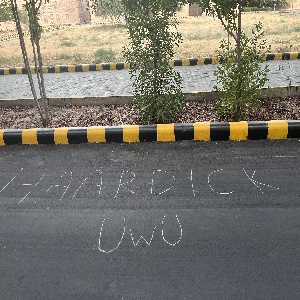 HAARDICK
UWU